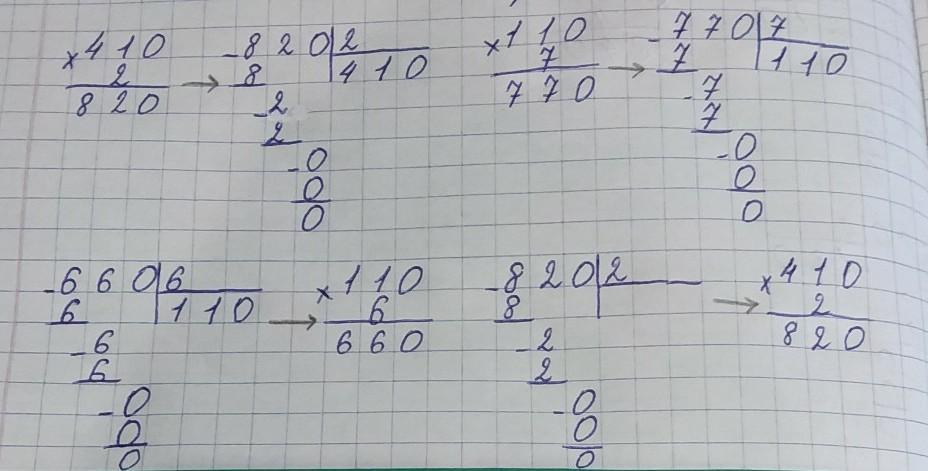 ×410 → -820|2 ×110 → -770|7
2 8 410 7 7 110
820 -2 770 -7
2 7
-0 -0
0 0
0 0
-660|6 ×110 -820|2 → ×410
6 110 → 6 8 2
-6 660 -2 820
6 2
-0 -0
0 0
0 0